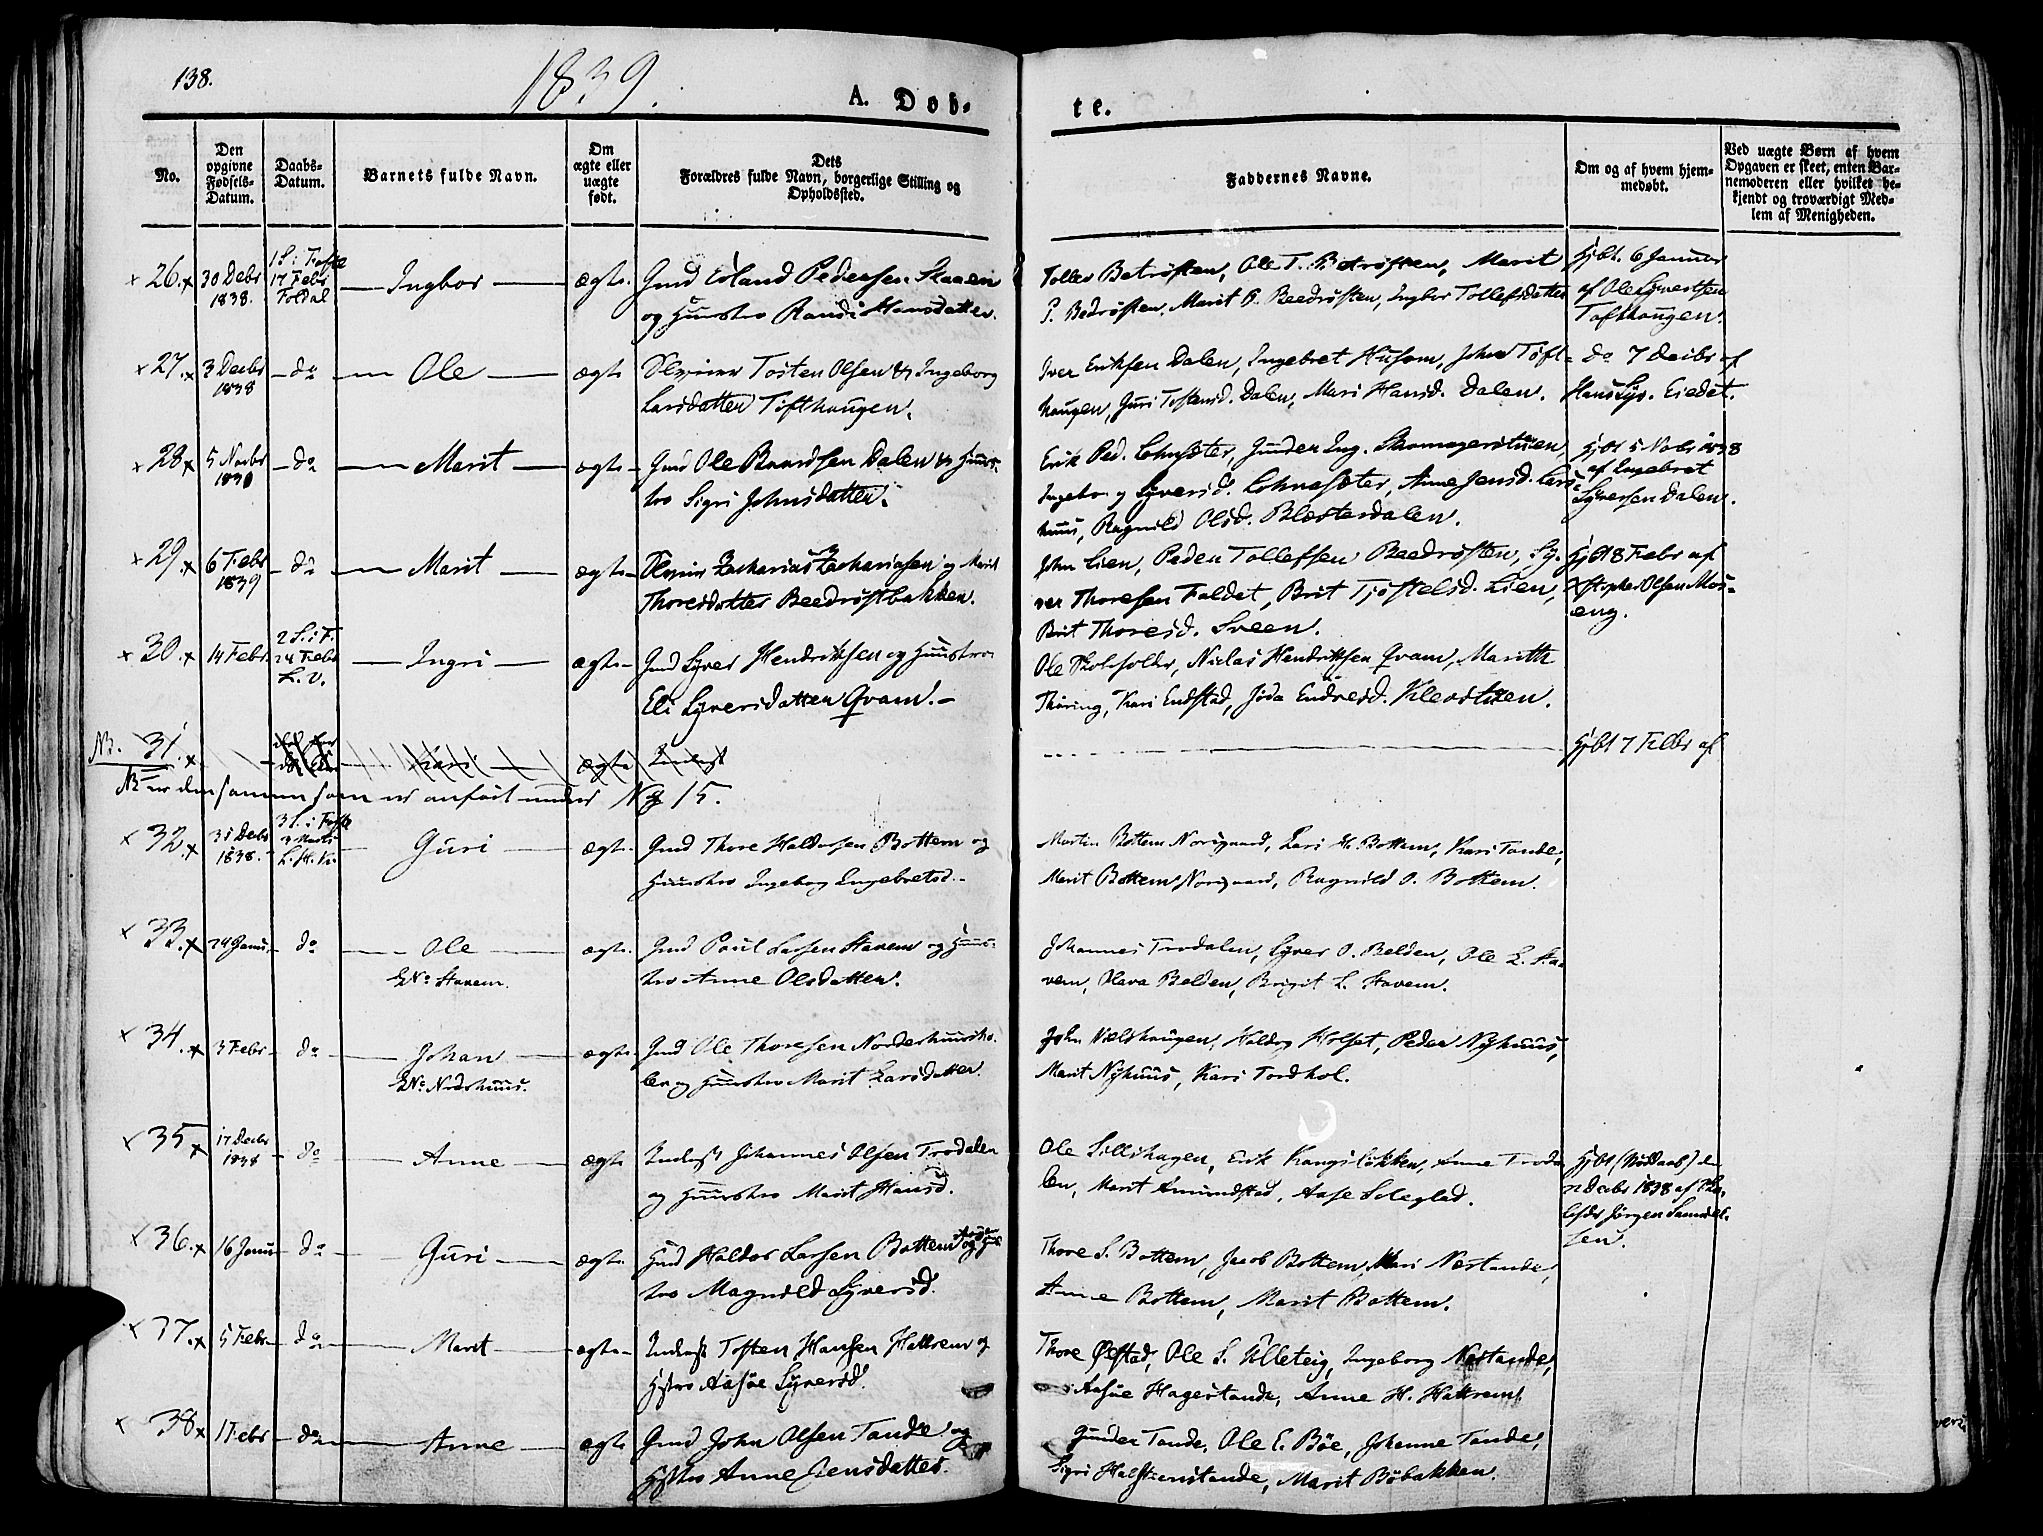 138.
1839.
A. Døb-
te.
No.
Den opgivne Fødsels-Datum.
Daabs-Datum.
Barnets fulde Navn.
Om ægte eller uægte født.
Dets Forældres fulde Navn, borgerlige Stilling og Opholdssted.
Faddernes Navne.
Om og af hvem hjem-medøbt.
Ved uægte Børn af hvem Opgaven er skeet, enten Bar-nemoderen eller hvilket be-kjendt og troværdigt Med-lem af Menigheden.
26. 30 Decbr 1838. 1 S. i Faste 17 Febr Foldal Ingbor ægte. Gmd Erland Pedersen Skaaen
og Huustro Randi Hansdatter.
Tollef Betrøsten, Ole T. Betrøsten, Marit
P. Bedrøsten, Marit O. Beedrøsten, Ingbor Tollefsdatter
Hjbt. 6 Januar
af Ole Syvertsen
Tofthaugen.
27. 3 Decbr 1838 do Ole ægte Tosten Olsen og Ingeborg
Larsdatter Tofthaugen.
Iver Eriksen Dalen, Ingebret Husom, John Toft-
haugen, Guri Tostensd. Dalen, Mari Hansd. Dalen.
do 7 Decbr af
Hans Syv. Eiedet.
28 5 Novbr do Marit ægte Gmd Ole Baardsen Dalen og Huus-
tro Sigri Johnsdatter.
Erik Ped. Lohnsæter, Gunder Ing. Skomagerstuen,
Ingeborg Syversd. Lohnesæter, Anne Jensd. Lars-
huus, Ragnild Olsd. Blæsterdalen.
Hjbt 5 Nobr 1838
af Ingebret
Syversen Dalen.
29. 6 Febr 1839 do Marit ægte Zacharias Zachariasen og Marit
Thoresdatter Beedrøstbakken.
John Lien, Peder Tollefsen Beedrøsten, Sy-
ver Thoresen Faldet, Brit Tjøstelsd. Lien,
Brit Thoresd. Sveen.
Hjbt 8 Febr af
Olsen Mos-
eng.
30. 14 Febr. 2 S. i F. 24 Febr L. V. Ingri ægte Gmd Syver Hendriksen og Huustro
Eli Syversdatter Qvam.
Ole, Niclas Hendriksen Qvam, Marith
Thøring, Kari Endstad, Endresd. Kleivstuen.
NB. 31. Kari ægte Inderst
Hjbt 7 Febr af
NB er den samme som er anført under No 15.
32. 31 Decbr 1838. 3 S. i Faste 3 Marts L. H. K. Guri ægte. Gmd Thore Haldorsen Bottem og
Huustro Ingeborg Engebretsd.
Martin Bottem Norigaard, Lars H. Bottem, Kari Tande,
Marit Bottem Norigaard, Ragnild O. Bottem.
33. 24 Janu. do Ole ægte. Gmd Poul Larsen Stavem og Huus-
ENo Stavem. tro Anne Olsdatter.
Johannes Trodalen, Syver O. Belden, Ole L. Sta-
vem, Olava Belden, Brigit L. Stavem.
34. 3 Febr do Johan ægte. Gmd Ole Thoresen Norderhuus
ENo Nordrhuus. og Huustro Marit Larsdatter.
John Nælshaugen, Haldor Holset, Peder Nyhuus,
Marit Nyhuus, Kari Tordhol.
35 17 Decbr 1838 do Anne ægte Inderst Johannes Olsen Trodalen
og Huustro Marit Hansd.
Ole Sillihagen, Erik Kongsløkken, Anne Troda-
len, Marit Amundstad, Aase Soleglad.
Hjbt (Nøddaab)
Decbr 1838 af
Jørgen Samuel-
sen.
36. 16 Janu do Guri ægte. Gmd Haldor Larsen Bottem og Huus-
tro Magnild Syversd.
Thore S. Bottem, Jacob Bottem, Mari Næstande,
Anne Bottem, Marit Bottem.
37. 5 Febr do Marit ægte Inderst Tosten Hansen Hattrem og
Hstro Aasøe Syversd.
Thore Ølstad, Ole S. Ulleteig, Ingeborg Nestande,
Aasøe Hagestande, Anne H. Hattrem.
38 1 Febr do Anne ægte Gmd John Olsen Tande og
Hstro Anne Jensdatter.
Gunder Tande, Ole E. Bøe, Johanne Tande,
Sigri Halstenstande, Marit Bøbakken.